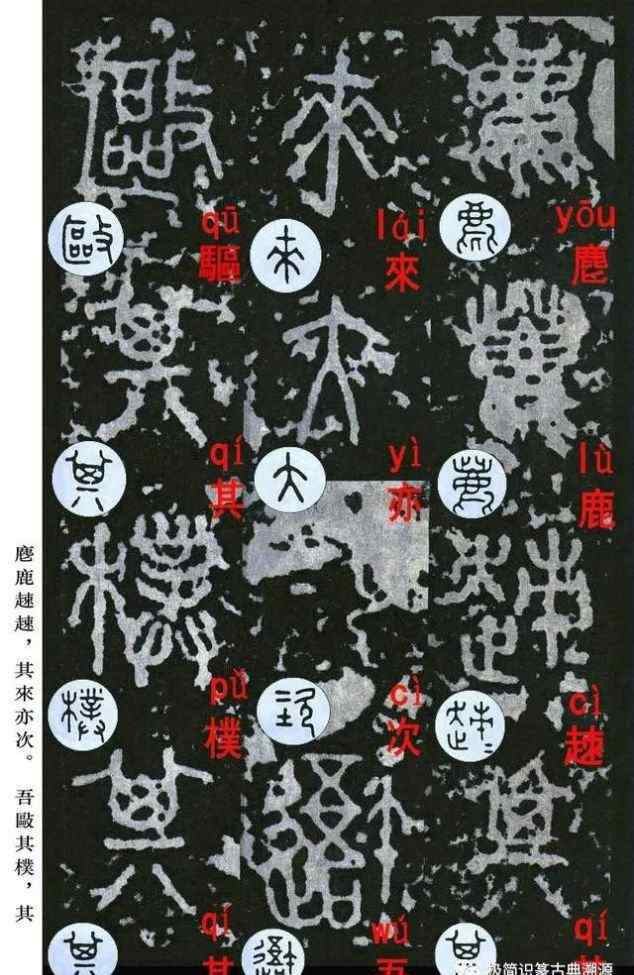 yōu
麀
lù
鹿
cì
趚
qí
其
lái
來
yì
亦
cì
次
wú
吾
qū
驅
qí
其
pǔ
樸
qí
其
麀鹿趚趚，其來亦次。 吾敺其樸，其
极简识篆古典溯源